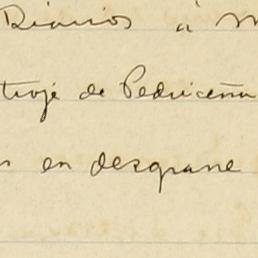 Diarios á M
troje de Pedriceña
en desgrane